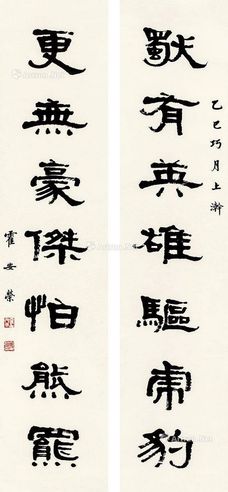 乙巳巧月上澣
獨有英雄驅虎豹
更無豪傑怕熊羆
霍安榮